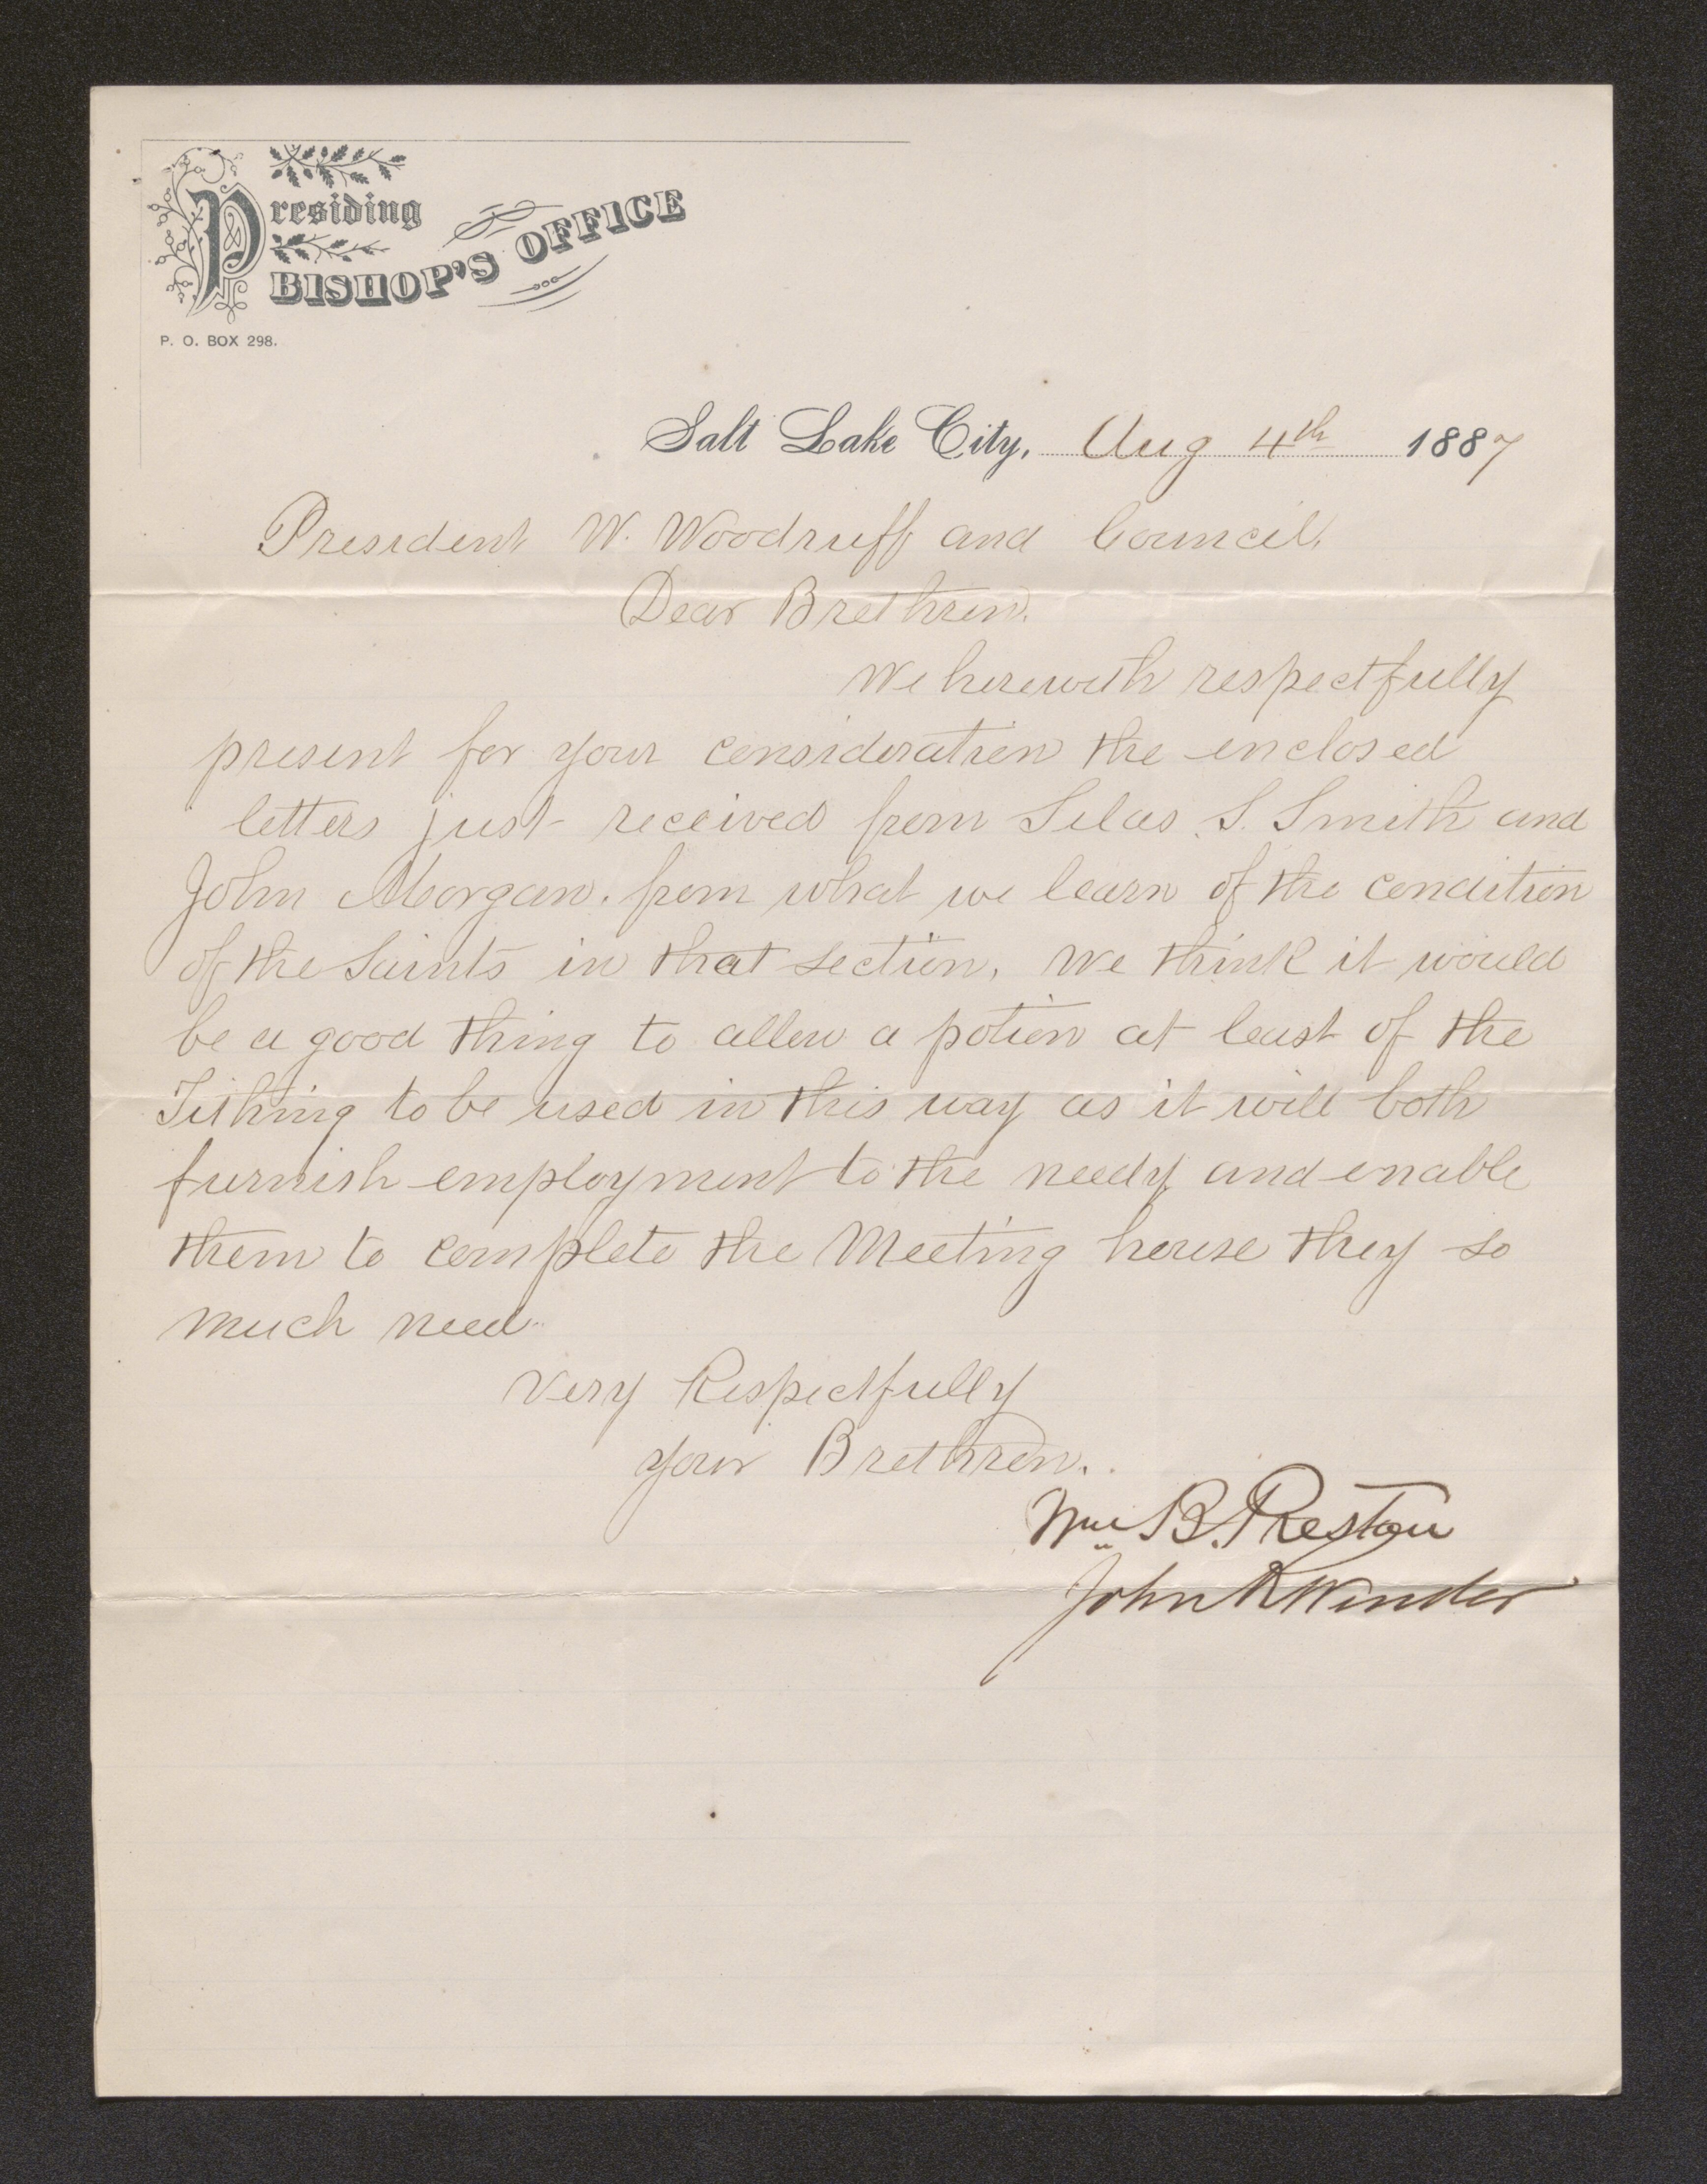 Presiding
BISHOP'S OFFICE
P. O. BOX 298.
Salt Lake City, Aug 4th 1887
President W. Woodruff and Council.
Dear Brethren.
We herewith respectfully
present for your consideration the enclosed
letters just received from Silas S. Smith and
John Morgan. from what we learn of the condition
of the Saints in that section, we think it would
be a good thing to allow a potion at least of the
Tithing to be used in this way as it will both
furnish employment to the needy and enable
them to complete the Meeting house they so
much need.
Very Respectfully
your Brethren.
Wm B. Preston
John R Winder